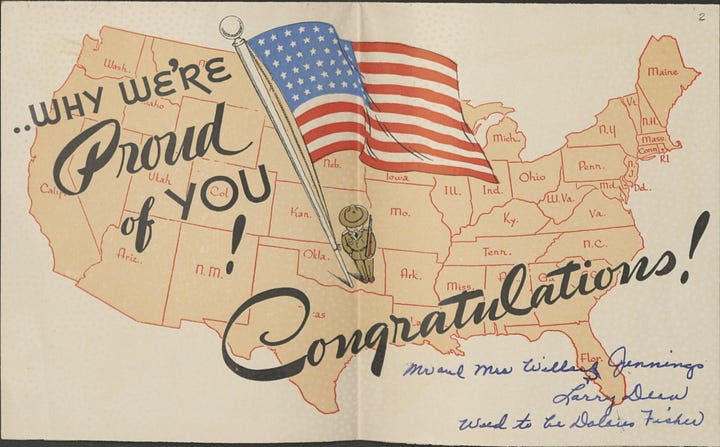 2
..WHY WE'RE
Proud
of YOU
!
Congratulations!
Wash.
Idaho
Calif
Utah
Col
Ariz.
N.M.
Neb.
Kan.
Okla.
Iowa
Mo.
Ark.
Ill.
Ind.
Mich.
Ohio
Ky.
Tenn.
Miss.
W.Va.
Va.
N.C.
Penn.
N.Y
Vt.
N.H.
Maine
Mass.
Conn
RI
N.J.
Md.
Del.
Ga
Flor.
Mr and Mrs Willard Jennings
Larry Dean
Used to be Dolores Fisher